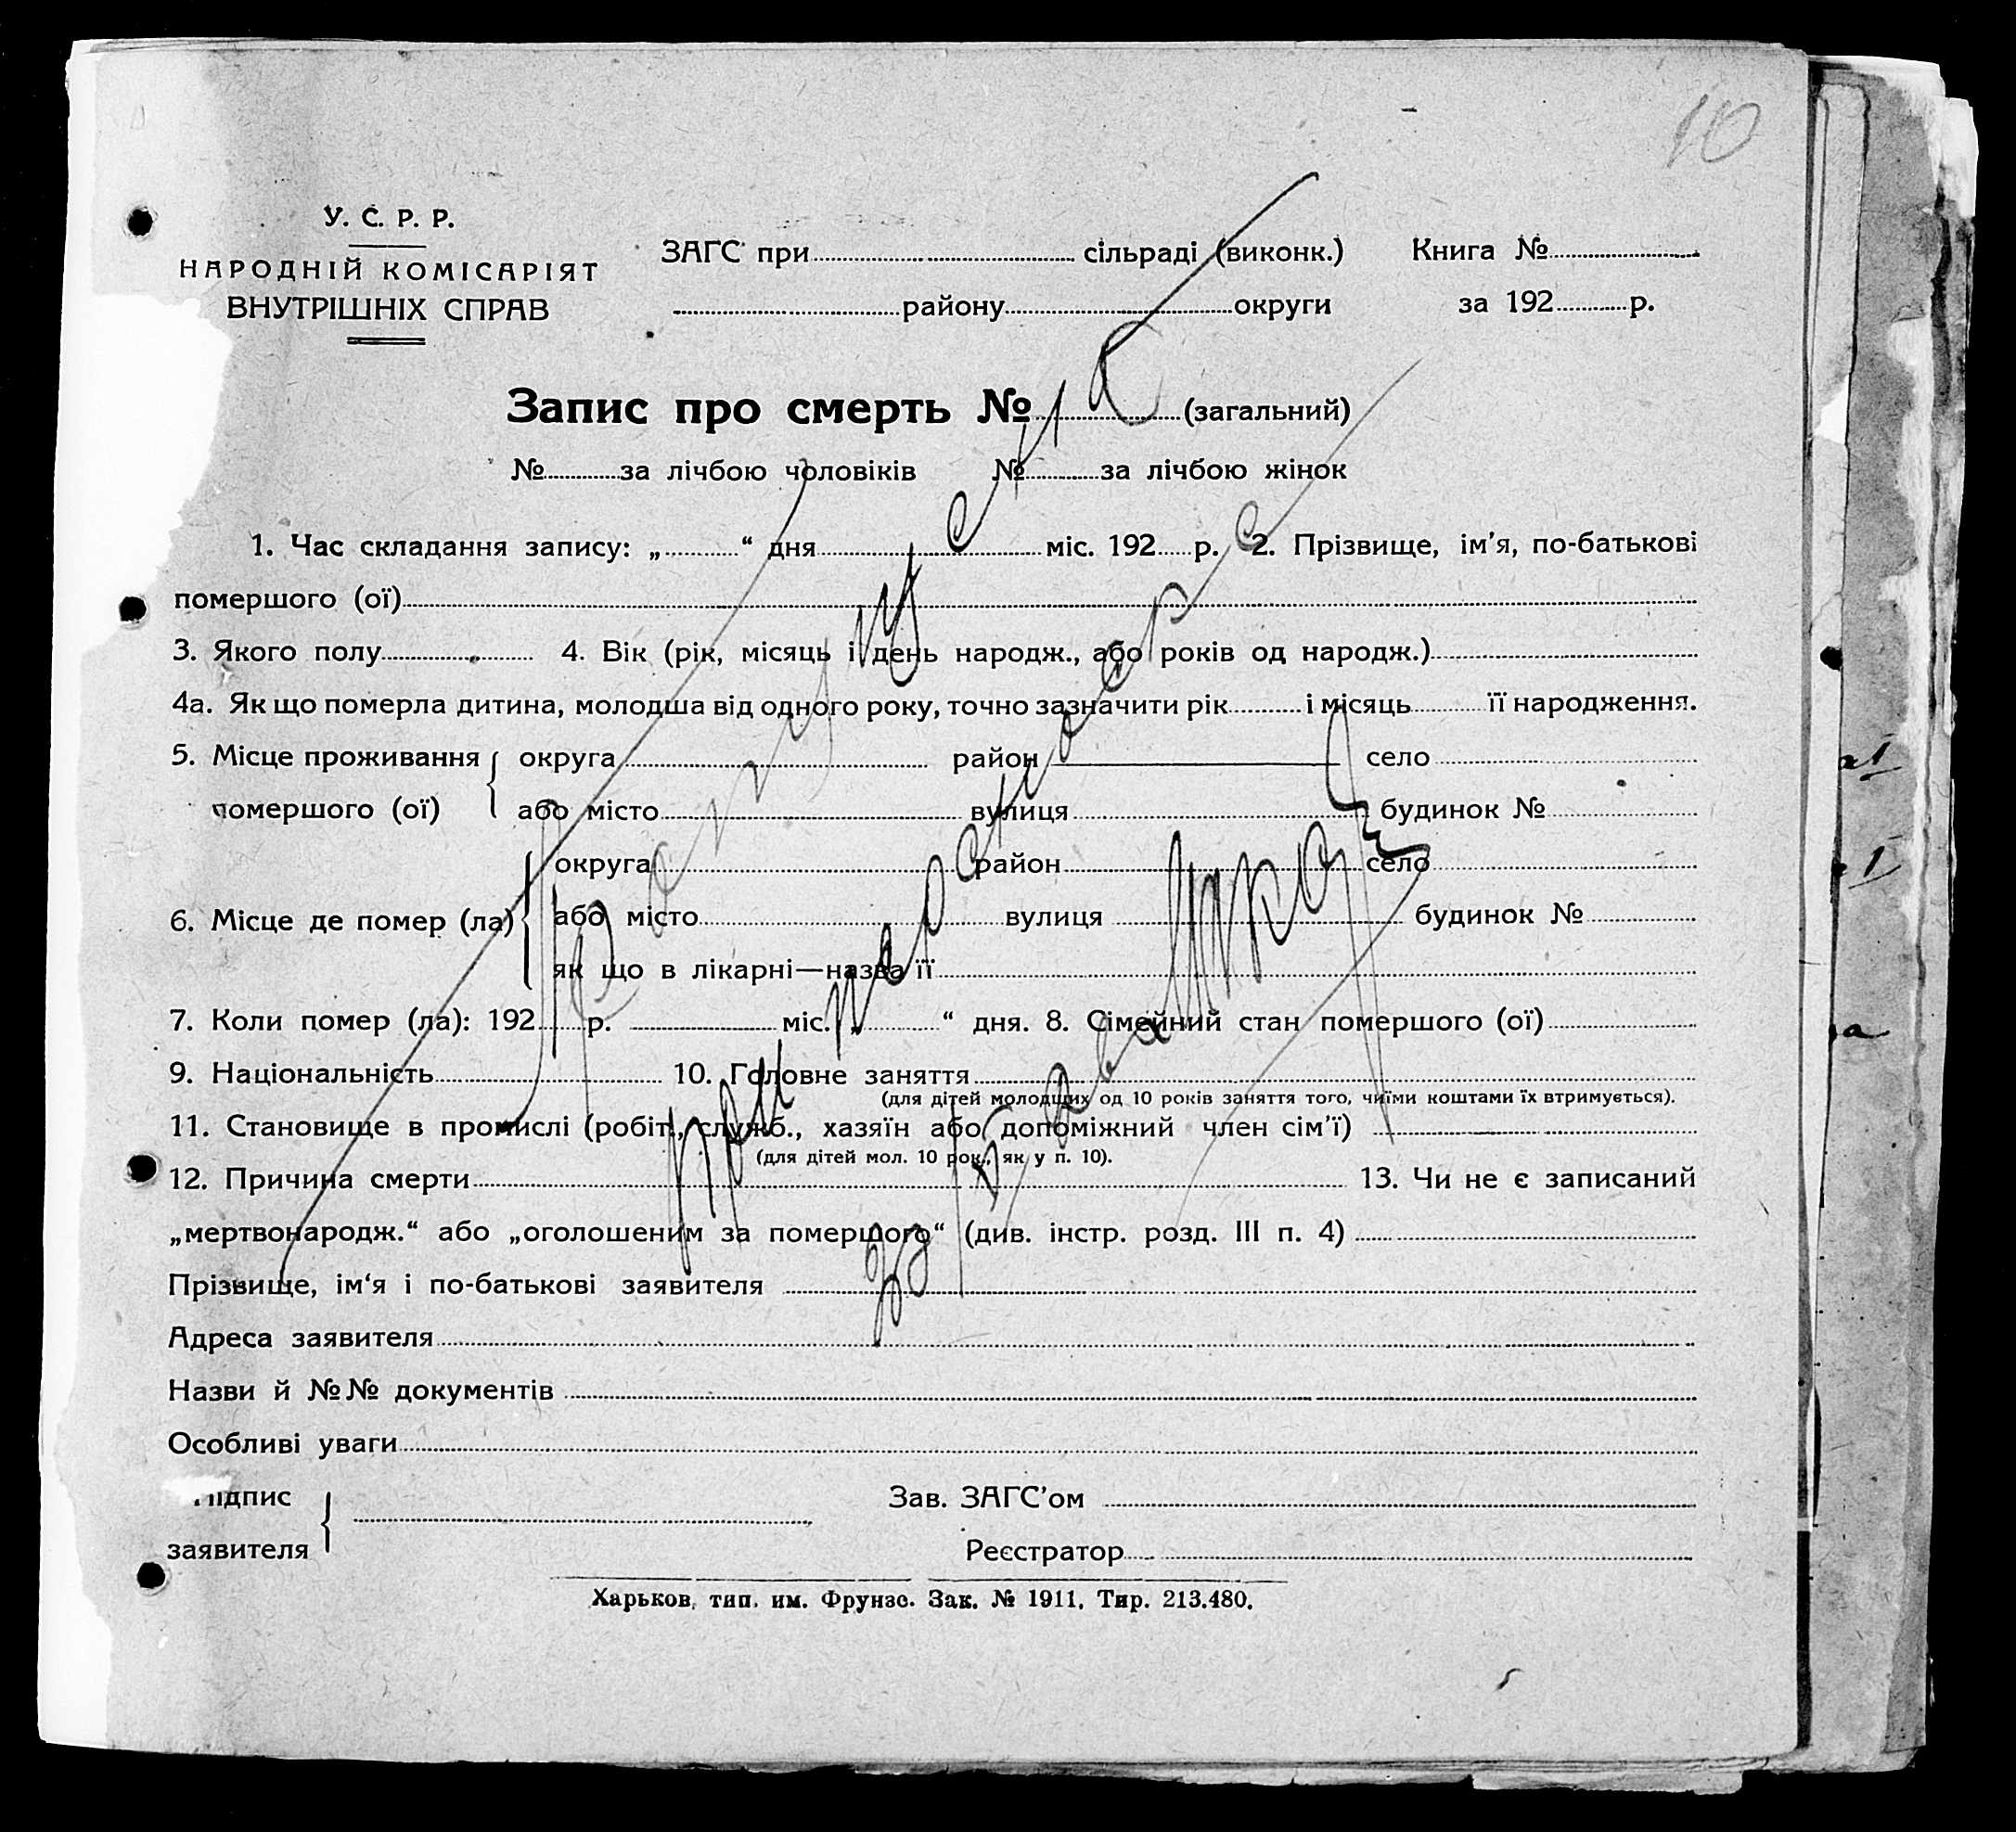 10
У. С. Р. Р.
НАРОДНІЙ КОМІСАРІЯТ
ВНУТРІШНІХ СПРАВ
ЗАГС при сільраді (виконк.) Книга №
району округи за 192 р.
Запис про смерть № (загальний)
№ за лічбою чоловіків № за лічбою жінок
1. Час складання запису: „ “ дня міс. 192 р. 2. Прізвище, ім’я, по-батькові
помершого (ої)
3. Якого полу 4. Вік (рік, місяць і день народж., або років од народж.)
4а. Як що померла дитина, молодша від одного року, точно зазначити рік і місяць її народження.
5. Місце проживання помершого (ої) { округа район село
або місто вулиця будинок №
6. Місце де помер (ла) { округа район село
або місто вулиця будинок №
як що в лікарні—назва її
7. Коли помер (ла): 192 р. міс. „ “ дня. 8. Сімейний стан помершого (ої)
9. Національність 10. Головне заняття
(для дітей молодших од 10 років заняття того, чиїми коштами їх втримується).
11. Становище в промислі (робіт., служб., хазяїн або допоміжний член сім’ї)
(для дітей мол. 10 рок., як у п. 10).
12. Причина смерти 13. Чи не є записаний
„мертвонародж.“ або „оголошеним за помершого“ (див. інстр. розд. III п. 4)
Прізвище, ім‘я і по-батькові заявителя
Адреса заявителя
Назви й №№ документів
Особливі уваги
Підпис заявителя {
Зав. ЗАГС’ом
Реєстратор
Харьков, тип. им. Фрунзе. Зак. № 1911. Тир. 213.480.